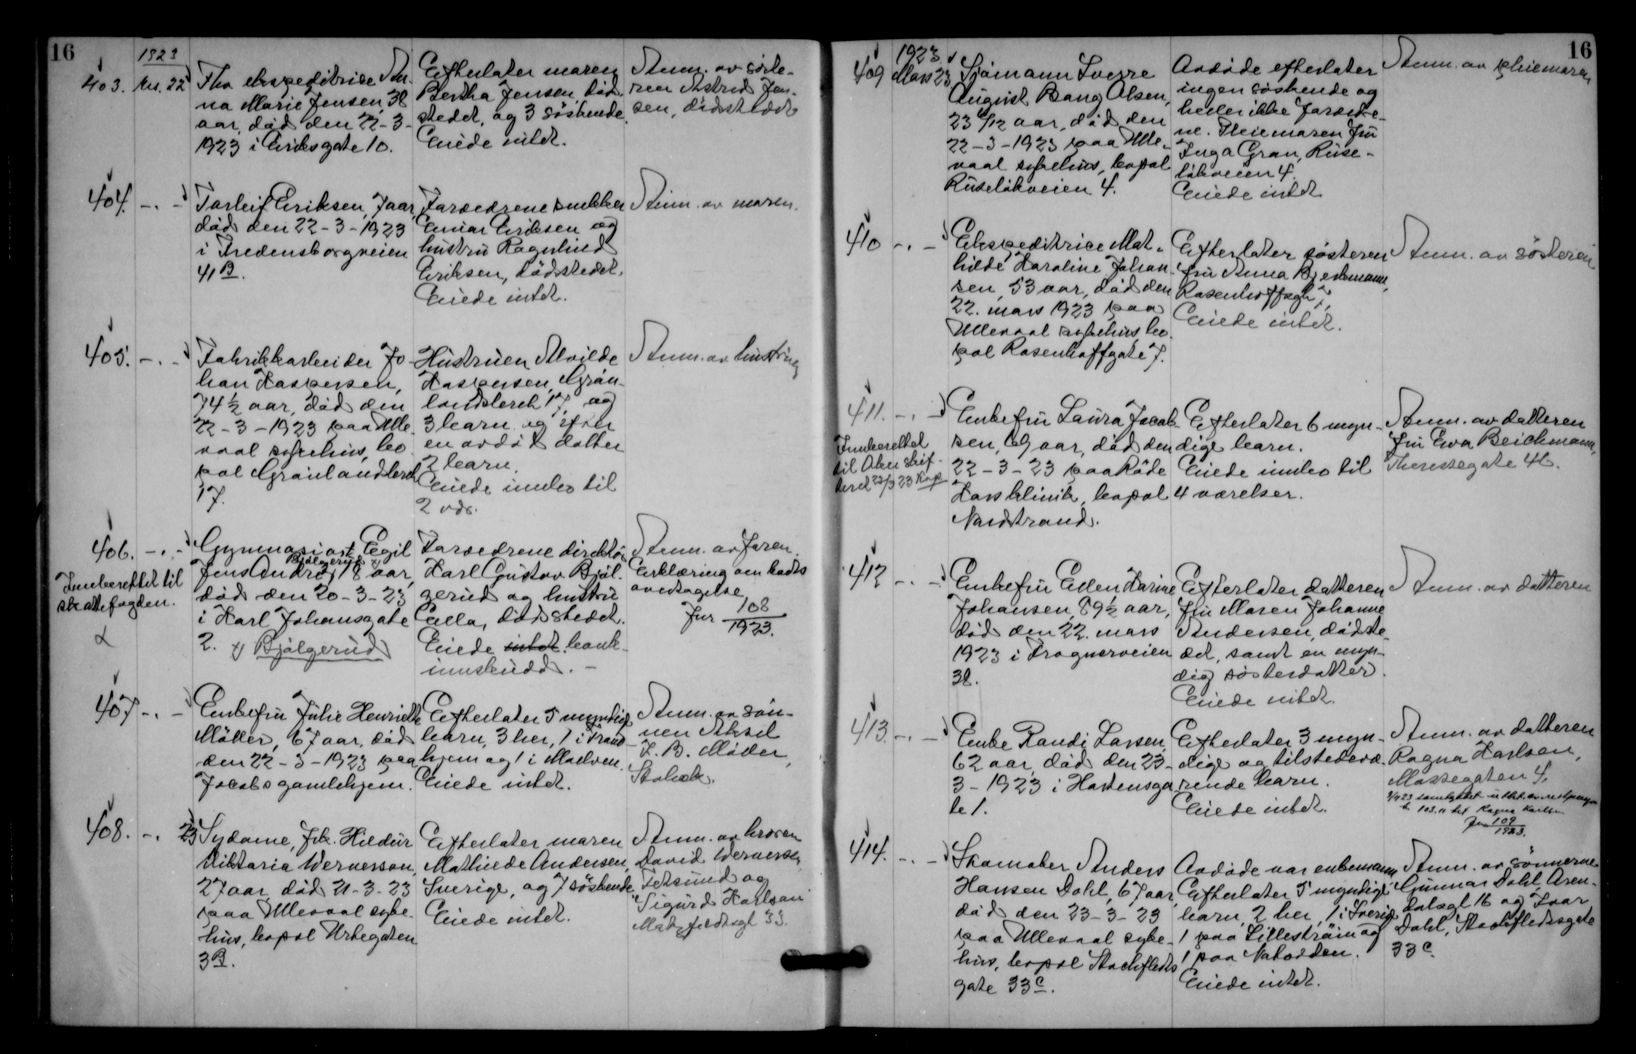 16
1923
403. Mrs. 22
Fhv ekspeditrice An-
na Marie Jensen, 38
aar, död den 22-3-
1923 i Eriksgate 10.
Efterlater moren
Bertha Jensen död-
stedet, og 3 söskende.
Eiede intet.
Anm. av söste-
ren Astrid Jen-
sen, dödsstedet
404. -.-
Torleif Eriksen, 7 aar
död den 22-3-1923
i Fredensborgveien
41 B.
Forældrene snekker
Einar Eriksen og
hustru Ragnhild
Eriksen, dödstedet.
Eiede intet.
Anm. av moren.
405. -.-
Fabrikkarbeider Jo-
han Kaspersen,
74 1/2 aar, död den
22-3-1923 paa Ulle-
vaal sykehus, bo-
pæl Grönlandsleret
17.
Hustruen Alvilde
Kaspersen, Grön-
landsleret 17, og
3 barn og efter
en avdöd datter
2 barn.
Eiede innbo til
2 vær.
Anm. av hustru
406. -.-
Innberettet til
skattefogden.
Gymnasiast Egil
Jens André Bjölgerud x), 18 aar,
död den 20-3-23
i Karl Johansgate
2. x) Bjölgerud
Forældrene direktör
Karl Gustav Bjöl-
gerud og hustru
Ella, dödstedet.
Eiede intet. bank-
innskudd. -
Anm. av faren.
Erklæring om bodets
overtagelse
Jnr 108/1923.
407 -.-
Enkefru Julie Henriette
Möller, 67 aar, död
den 22-3-1923 paa
Jacobs gamlehjem.
Efterlater 5 myndige
barn, 3 her, 1 i Trond-
hjem og 1 i
Eiede intet.
Anm. av sön-
nen Aksel
J. B. Möller,
408. -.- 23
Sydame, frk. Hildur
Viktoria Wernerson,
27 aar, död 21-3-23
paa Ullevaal syke-
hus, bopæl Urtegaten
3 B.
Efterlater moren
Mathilde Andersen,
Sverige, og 7 söskende
Eiede intet.
Anm. av broren
David Wernerson,
Fetsund og
Sigurd Karlson
33.
16
1923
409 Mars 23
Sjömann Sverre
August Bang Olsen,
23 aar, död den
22-3-1923 paa Ulle-
vaal sykehus, bopæl
Ruselökveien 4.
Avdöde efterlater
ingen söskende og
heller ikke foreldre-
ne. Pleiemoren fru
Inga Gran, Ruse-
lökveien 4.
Eiede intet
Anm. av pleiemoren
410 -.-
Ekspeditrice Mat-
hilde Karoline Johan-
sen, 53 aar, död den
22. mars 1923 paa
Ullevaal sykehus, bo-
pæl Rosenhoffgate 7.
Efterlater sösteren
fru Anna Bjerkmann,
Rosenhoffsgt 7.
Eiede intet.
Anm. av sösteren
411. -.-
Innberettet
til Aker skif-
teret 23/3 23
Enkefru Laura Jacob-
sen, 69 aar, död den
22-3-23 paa Röde
Kors klinik, bopæl
Nordstrand.
Efterlater 6 myn-
dige barn.
Eiede innbo til
4 værelser.
Anm. av datteren
fru Eva Beichmann,
Theresegate 46.
412 -.-
Enkefru Ellen Karine
Johansen, 89 1/2 aar,
död den 22. mars
1923 i Frognerveien
38.
Efterlater datteren
fru Maren Johanne
Andersen, dödste-
det, samt en myn-
dig sösterdatter.
Eiede intet
Anm. av datteren
413. -.-
Enke Randi Larsen,
62 aar, död den 23-
3-1923 i Hortensga-
te 1.
Efterlater 3 myn-
dige og tilstedevæ-
rende barn.
Eiede intet.
Anm. av datteren
Ragna Karlsen,
Mossegaten 4.
Ragna Karlsen
Jnr 109/1923.
414. -.-
Skomaker Anders
Hansen Dahl, 67 aar,
död den 23-3-23
paa Ullevaal syke-
hus, bopæl Stockfleths
gate 33 c.
Avdöde var enkemann
Efterlater 5 myndige
barn, 2 her, 1 i Sverige
1 paa Lilleström og
1 paa Notodden.
Eiede intet.
Anm. av sönnerne
Gunnar Dahl, Aren-
dalsgt 16 og Ivar
Dahl, Stockflethsgate
33 c.